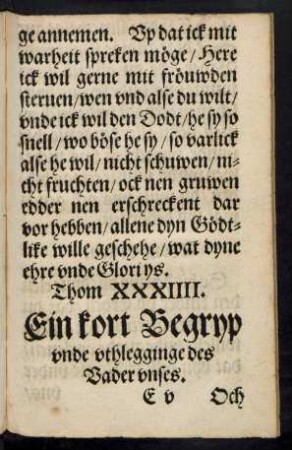 ge annemen. Vp dat ick mit
warheit spreken möge/Here
ick wil gerne mit fröuwden
steruen/wen vnd alse du wilt/
vnde ick wil den Dodt/he sy so
snell/wo böse he sy/so varlick
alse he wil/nicht schuwen/ni-
cht fruchten/ock nen gruwen
edder nen erschreckent dar
vor hebben/allene dyn Gödt-
like wille geschehe/wat dyne
ehre vnde Glori ys.
Thom XXXIIII.
Ein kort Begryp
vnde vthlegginge des
Vader vnses.
E v Och